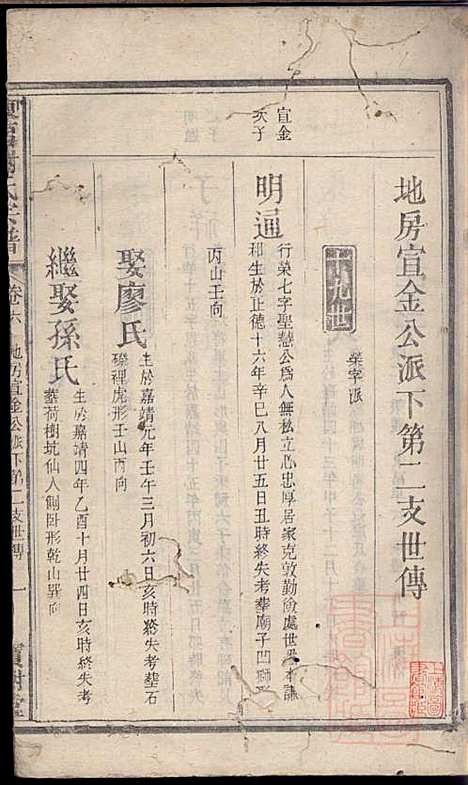 地房宣金公派下第二支世傳
十九世
榮字派
宣金
次子
明通
行榮七字聖慧公爲人無私立志忠厚居家克敦勤儉處世
和生於正德十六年辛巳八月廿五日丑時終失考葬廟子凹獅形
丙山壬向
娶廖氏
生於嘉靖元年壬午三月初六日亥時終失考葬石
磜裡虎形壬山丙向
繼娶孫氏
生於嘉靖四年乙酉十月廿四日亥時終失考
葬荷樹坑仙人側卧形乾山巽向
氏宗譜
卷六
地房宣金公派下第二支世傳
一
寶樹堂